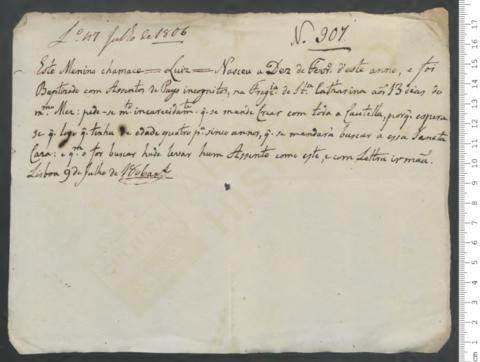 Lº 47 Julho de 1806 Nº 907.
Este Menino chamace = Luiz = Nasceu a Dez de Fevrº d'este anno, e foi
Baptizado com Assento de Pays incognitos, na Fregª de Stª Catharina aos 13 dias do
mmo Mez: pede-se mto q. se mande Criar com toda a Cautella, porq. espera
se q. logo q. tenha de edade quatro pª sinco annos, q. se mandará buscar a essa Santa
Caza: e qm o for buscar hade levar hum Assento como este, e com Lettra irmãa.
Lisboa 9 de Julho de